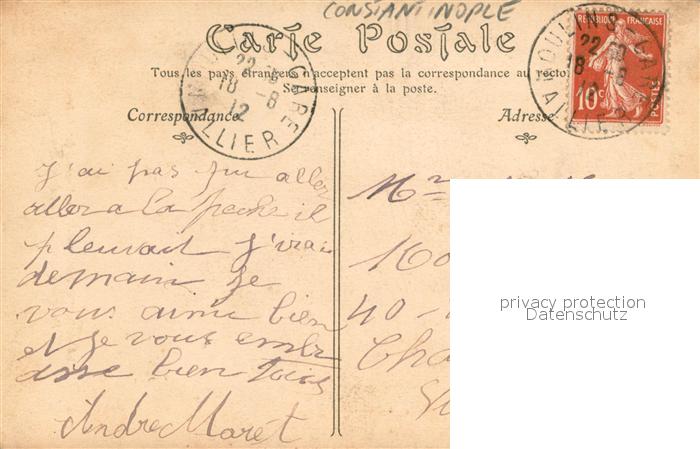 CONSTANTINOPLE
Carte Postale
Tous les pays étrangers n'acceptent pas la correspondance au recto
Se renseigner à la poste.
Correspondance
Adresse
MOULINS GARE
22 30
18 -8
12
ALLIER
RÉPUBLIQUE FRANÇAISE
10c
POSTES
MOULINS GARE
18 -8
12
ALLIER
J'ai pas pu aller
aller a la peche il
pleuvait J'irai
demain Je
vous aime bien
et Je vous embr
asse bien tous
Andre Maret
Mr
40
Cha
privacy protection
Datenschutz